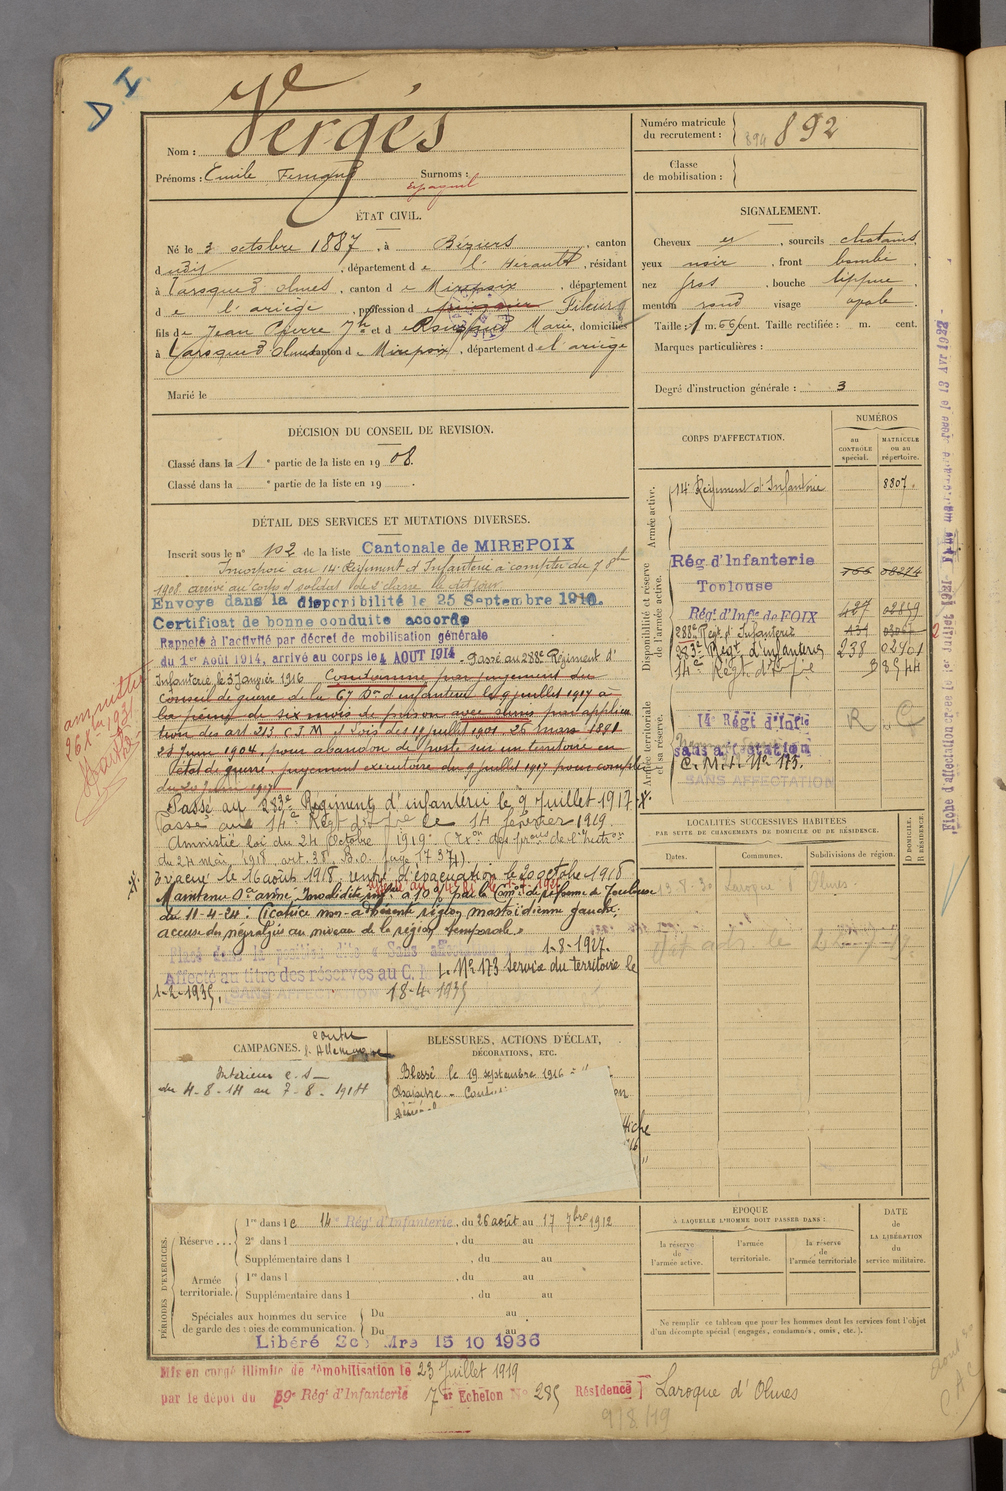 D I
Vergès
Nom :
Prénoms : Emile Fernand Surnoms :
Espagnol
Numéro matricule du recrutement : 894 892
Classe de mobilisation :
ÉTAT CIVIL.
Né le 3 octobre 1887, à Béziers, canton
dudit, département de l'Hérault, résidant
à Laroque d'Olmes, canton de Mirepoix, département
de l'ariège, profession de Fileur
fils de Jean Pierre et de Marie, domiciliés
à Laroque d'Olmes canton de Mirepoix, département de l'ariège
Marié le
SIGNALEMENT.
Cheveux et, sourcils chatains,
yeux noir, front bombé
nez gros, bouche lippue
menton rond visage ovale
Taille : 1 m. 66 cent. Taille rectifiée : m. cent.
Marques particulières :
Degré d'instruction générale : 3
DÉCISION DU CONSEIL DE REVISION.
Classé dans la 1e partie de la liste en 1908.
Classé dans la e partie de la liste en 19 .
DÉTAIL DES SERVICES ET MUTATIONS DIVERSES.
Inscrit sous le n° 102 de la liste Cantonale de MIREPOIX
Incorporé au 14e Régiment d'Infanterie à compter du 7 8bre
1908 arrivé au corps et soldat de 2e classe le dit jour
Envoyé dans la disponibilité le 25 Septembre 1910.
Certificat de bonne conduite accordé
Rappelé à l'activité par décret de mobilisation générale
du 1er Août 1914, arrivé au corps le 4 AOUT 1914 - Passé au 288e Régiment d'
Infanterie, le 3 Janvier 1916 Condamné par jugement du
Conseil de guerre de la 67 Don d'infanterie le 9 juillet 1917 à
la peine de six mois de prison avec sursis par applica
tion des art 213 C.J.M et Lois des 19 juillet 1901 26 mars 1891
23 Juin 1904 pour abandon de poste sur un territoire en
état de guerre, jugement exécutoire du 9 juillet 1917 pour compter
amnistié
Passé au 283e Régiment d'infanterie le 9 Juillet 1917
Passé au 14e Régt d'Inf le 14 février 1919
Amnistié loi du 24 Octobre 1919.
du 24 mai 1918 art. 38. B.O. page 1737)
Evacué le 16 août 1918, rentré d'évacuation le 20 octobre 1918
Maintenu Sce armé, Invalidité inf. à 10 % par la Comon de réforme de Toulouse
du 11-4-24 : Cicatrice non adhérente région mastoïdienne gauche;
accuse des névralgies au niveau de la région temporale.
1-8-1927.
Affecté au titre des réserves au C. M. I. No 173 Service du territoire le
1-2-1935. SANS AFFECTATION 18-4-1935
CORPS D'AFFECTATION.
NUMÉROS
au CONTRÔLE spécial.
MATRICULE ou au répertoire.
Armée active.
14e Régiment d'Infanterie 8807.
Disponibilité et réserve de l'armée active.
Rég. d'Infanterie
Toulouse
Régt d'Infie de FOIX 427
288e Régt d'Infanterie
283e Régt d'infanterie 238
14e Régt d'Inf
Armée territoriale et sa réserve.
14e Régt d'Infie R. C
sans affectation
C.M.I. No 173.
SANS AFFECTATION
LOCALITÉS SUCCESSIVES HABITÉES
PAR SUITE DE CHANGEMENTS DE DOMICILE OU DE RÉSIDENCE.
Dates. Communes. Subdivisions de région. D DOMICILE. R RÉSIDENCE.
13-8-30 Laroque d'Olmes
CAMPAGNES.
contre l'Allemagne
Intérieur c. s.
du 4-8-14 au 7-8-1914
BLESSURES, ACTIONS D'ÉCLAT,
DÉCORATIONS, ETC.
Blessé le 19 septembre 1916
PÉRIODES D'EXERCICES.
Réserve....
1re dans le 14e Régt d'Infanterie, du 26 août au 17 7bre 1912
2e dans l , du au
Supplémentaire dans l , du au
Armée territoriale.
1re dans l , du au
Supplémentaire dans l , du au
Spéciales aux hommes du service de garde des voies de communication.
Du au
Du au
Libéré Sce Mre 15 10 1936
ÉPOQUE
À LAQUELLE L'HOMME DOIT PASSER DANS :
la réserve de l'armée active.
l'armée territoriale.
la réserve de l'armée territoriale
DATE de LA LIBÉRATION du service militaire.
Ne remplir ce tableau que pour les hommes dont les services font l'objet
d'un décompte spécial (engagés, condamnés, omis, etc.).
Mis en congé illimité de démobilisation le 23 Juillet 1919
par le dépôt du 59e Régt d'Infanterie 7e Echelon No 285 Résidence Laroque d'Olmes
918/19